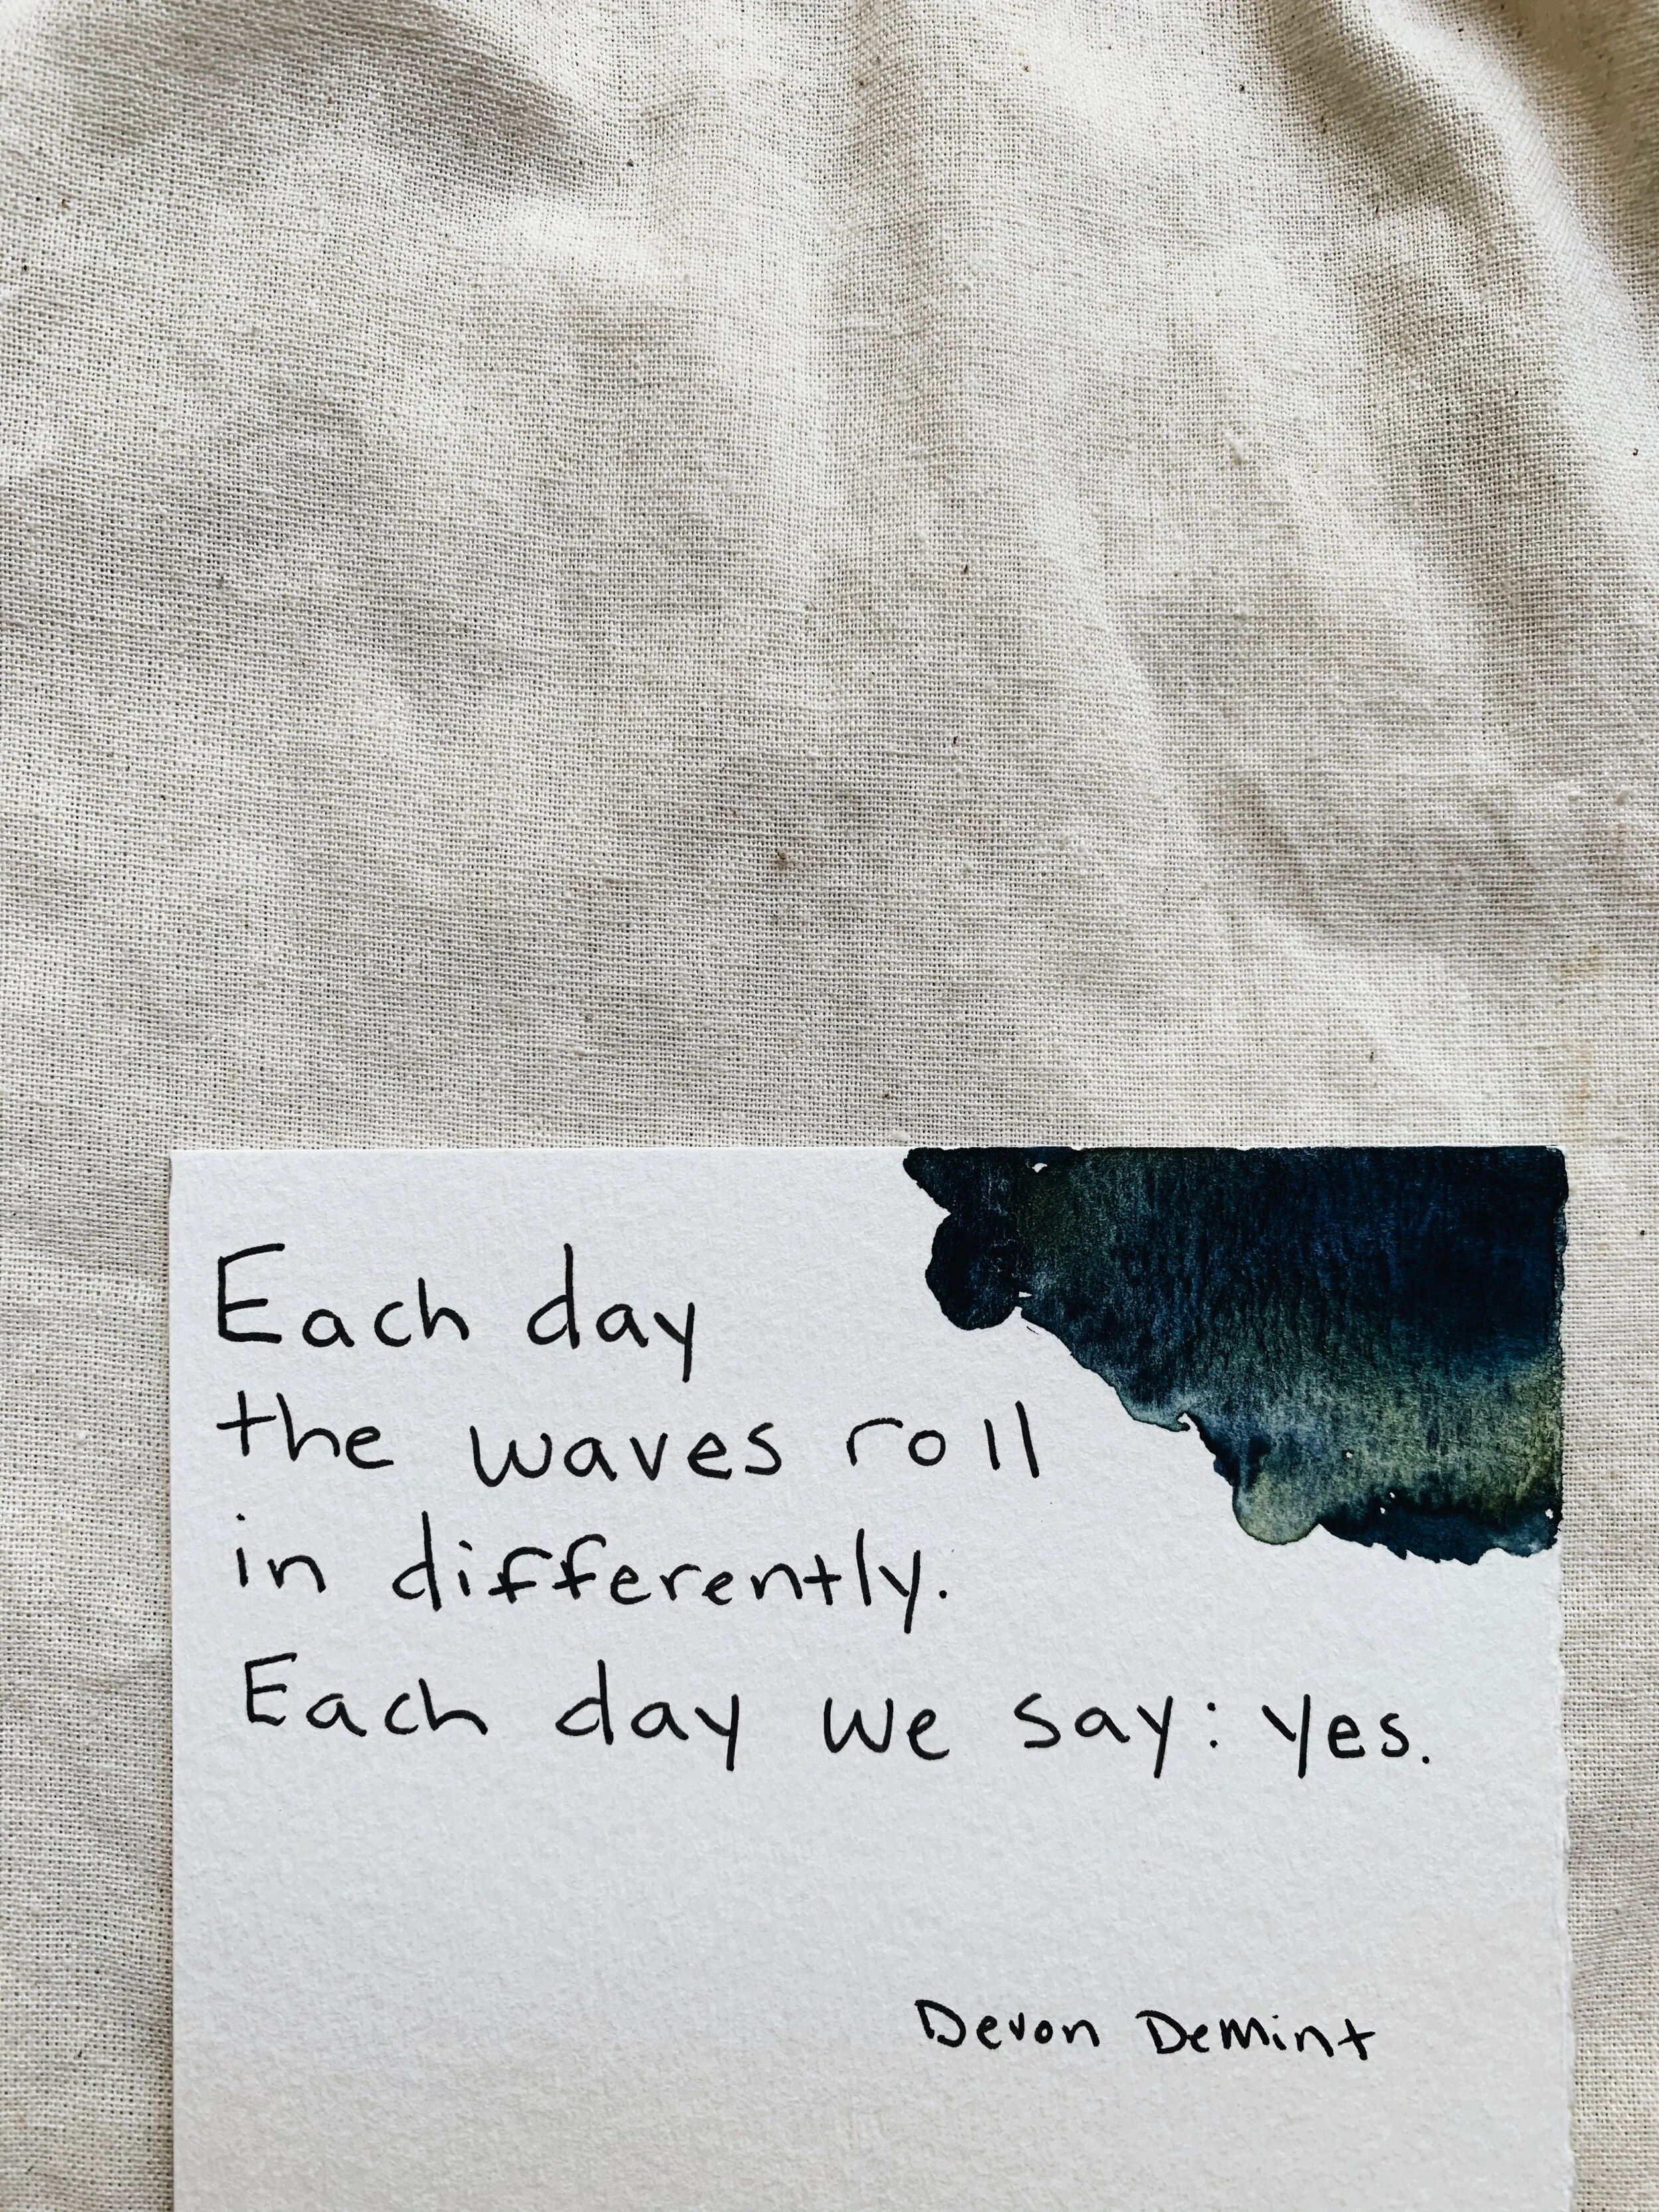 Each day
the waves roll
in differently.
Each day we say: yes.
Devon DeMint